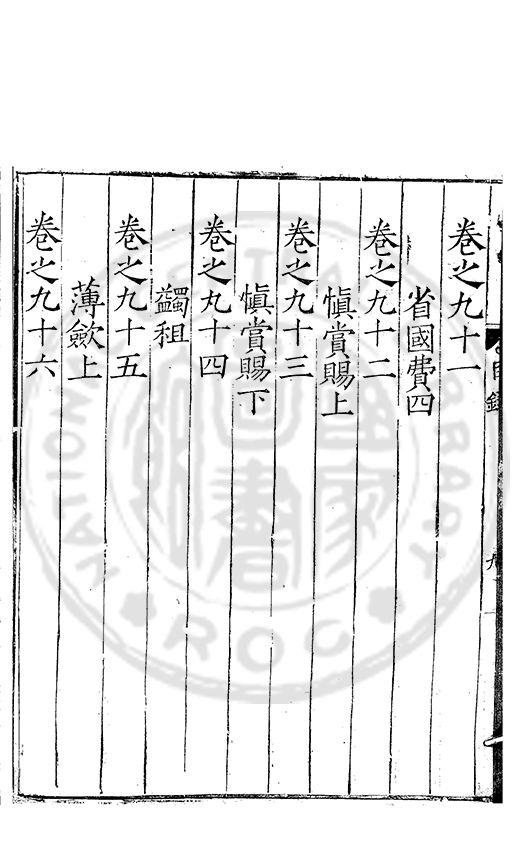 卷之九十一
省國費四
卷之九十二
慎賞賜上
卷之九十三
慎賞賜下
卷之九十四
蠲租
卷之九十五
薄歛上
卷之九十六
國家圖書館
NATIONAL LIBRARY
ROC